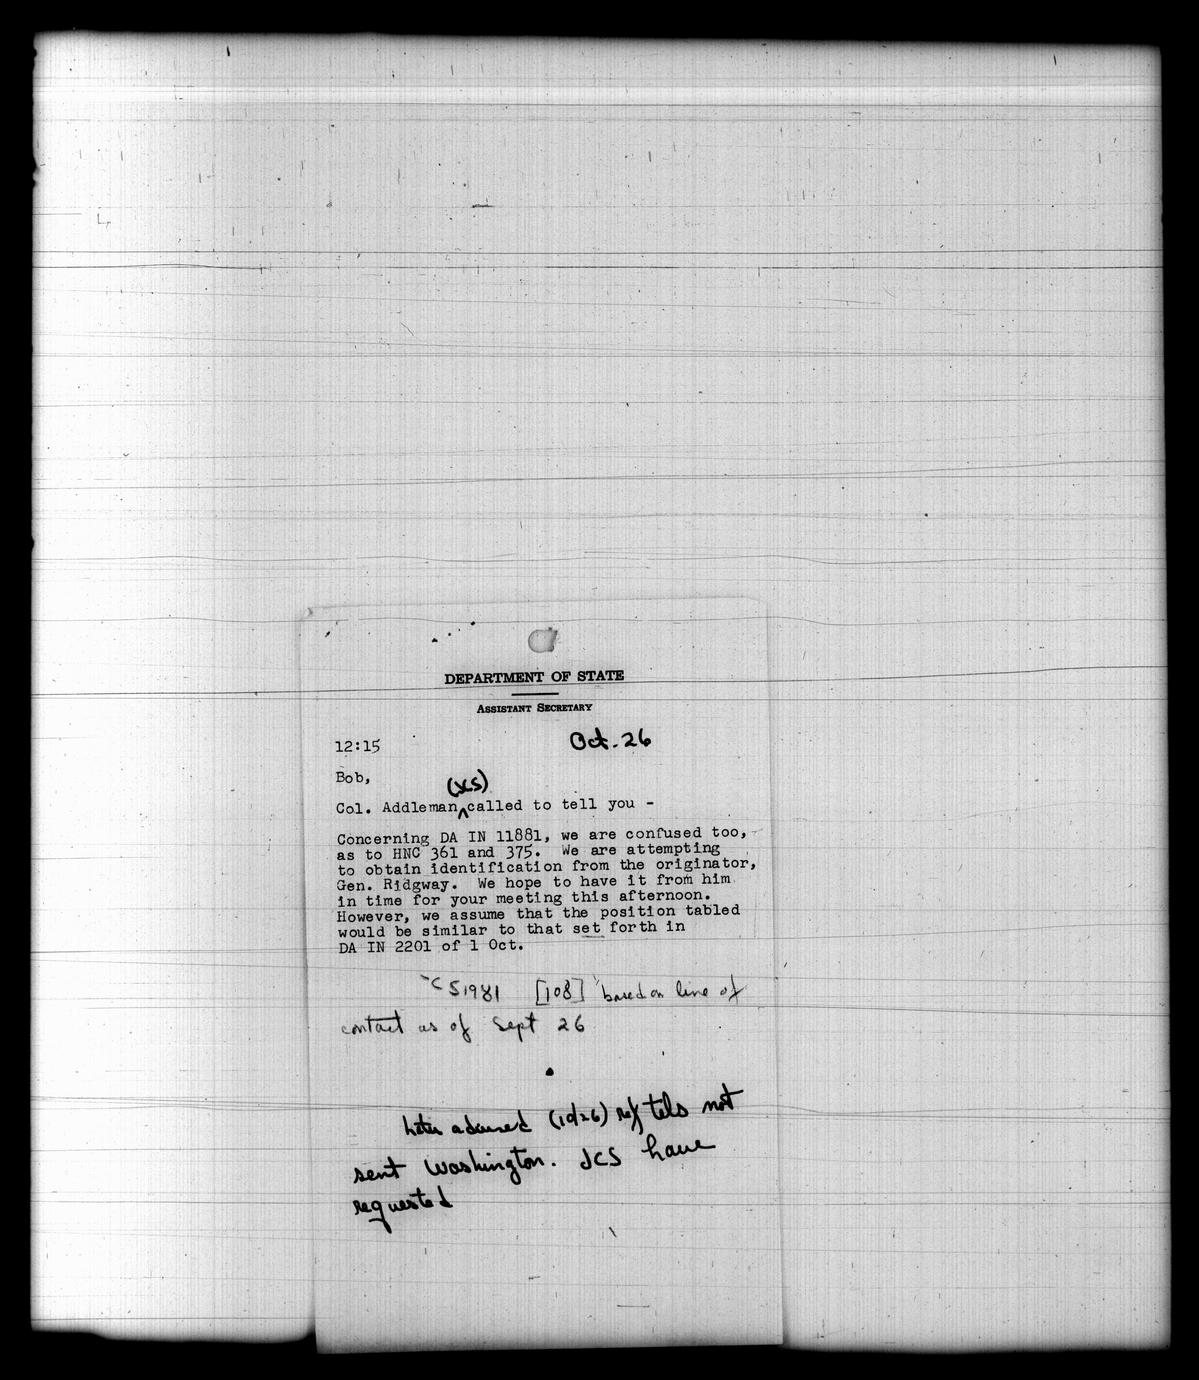 DEPARTMENT OF STATE
ASSISTANT SECRETARY
12:15 Oct. 26
Bob,
(JCS)
Col. Addleman ^ called to tell you -
Concerning DA IN 11881, we are confused too,
as to HNC 361 and 375. We are attempting
to obtain identification from the originator,
Gen. Ridgway. We hope to have it from him
in time for your meeting this afternoon.
However, we assume that the position tabled
would be similar to that set forth in
DA IN 2201 of 1 Oct.
C 51981 [108] based on line of
contact as of Sept 26
Later advised (10/26) ref tels not
sent Washington. JCS have
requested